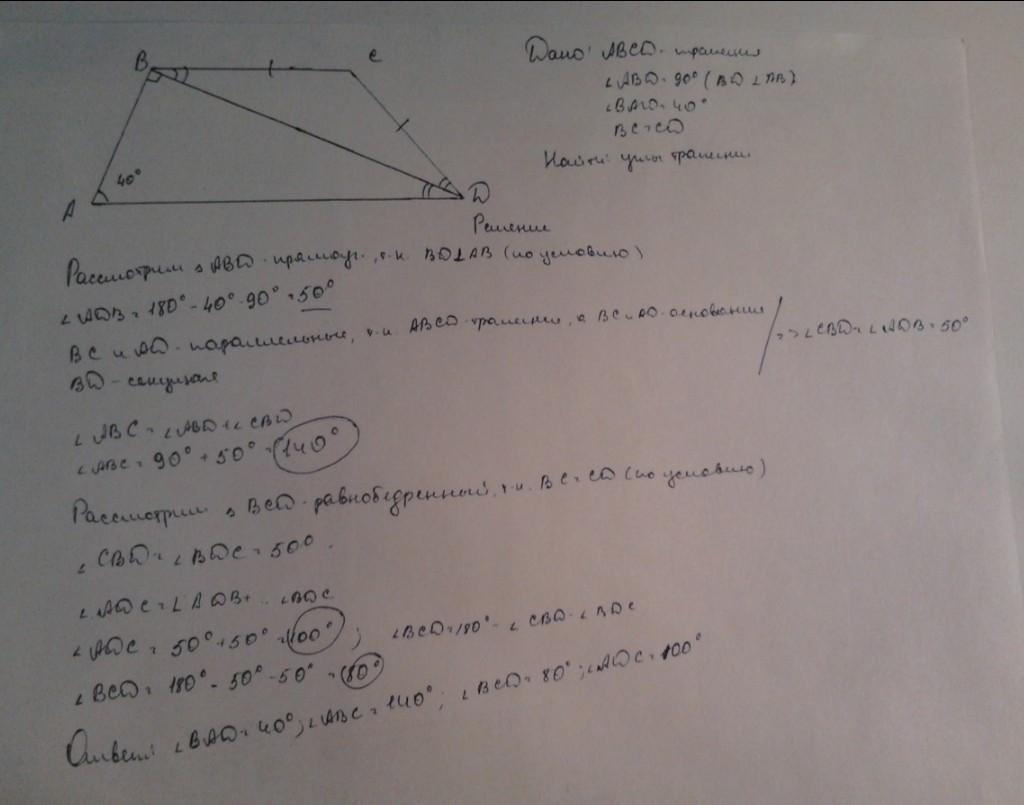 B C
Дано: ABCD - трапеция
∠ABD = 90° (BD ⊥ AB)
∠BAD = 40°
BC = CD
Найти: углы трапеции
40°
A D
Решение
Рассмотрим ▵ ABD - прямоуг., т.к. BD⊥AB (по условию)
∠ADB = 180° - 40° - 90° = 50°
BC и AD - параллельные, т.к. ABCD - трапеция, а BC и AD - основания
BD - секущая
=> ∠CBD = ∠ADB = 50°
∠ABC = ∠ABD + ∠CBD
∠ABC = 90° + 50° = 140°
Рассмотрим ▵ BCD - равнобедренный, т.к. BC = CD (по условию)
∠CBD = ∠BDC = 50°.
∠ADC = ∠ADB + ∠BDC
∠ADC = 50° + 50° = 100° ; ∠BCD = 180° - ∠CBD - ∠BDC
∠BCD = 180° - 50° - 50° = 80°
Ответ: ∠BAD = 40°; ∠ABC = 140°; ∠BCD = 80°; ∠ADC = 100°